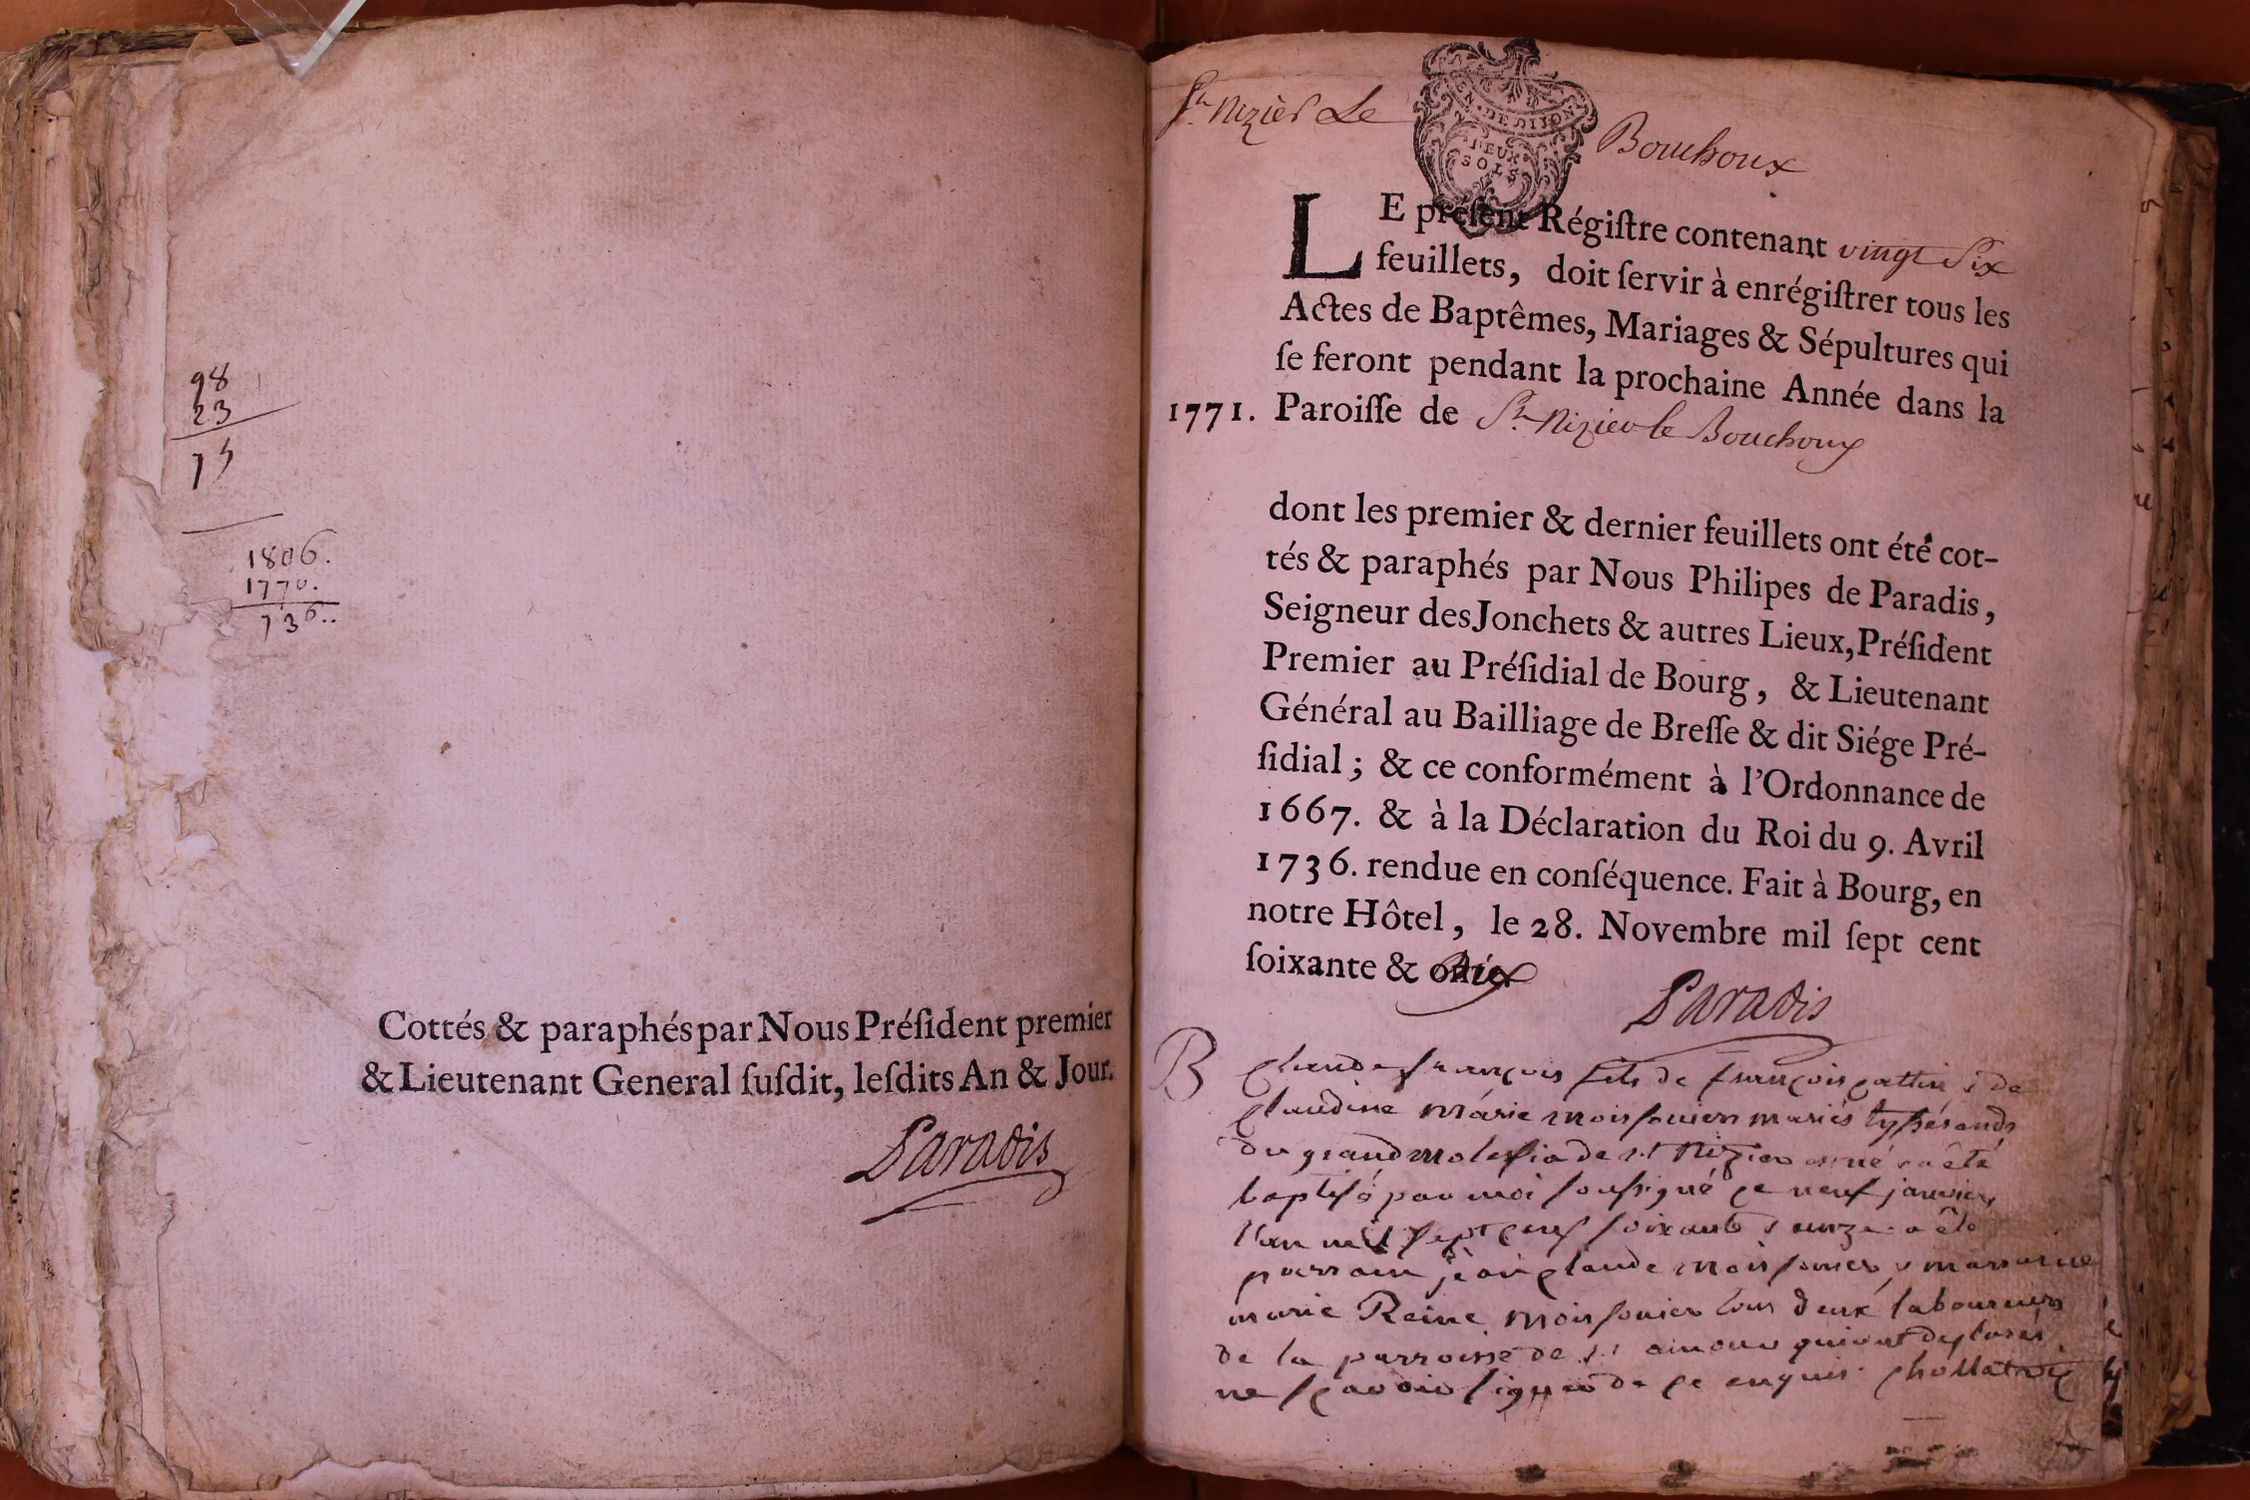 98
23
75
1806.
1770.
736..
Cottés & paraphés par Nous Préſident premier
& Lieutenant General ſuſdit, leſdits An & Jour.
Paradis
St. Nizier Le Bouchoux
N. DE DIJON
DEUX
SOLS
LE preſent Régiſtre contenant vingt Six
feuillets, doit ſervir à enrégiſtrer tous les
Actes de Baptêmes, Mariages & Sépultures qui
ſe feront pendant la prochaine Année dans la
1771. Paroiſſe de St. Nizier le Bouchoux
dont les premier & dernier feuillets ont été cot-
tés & paraphés par Nous Philipes de Paradis,
Seigneur des Jonchets & autres Lieux, Préſident
Premier au Préſidial de Bourg, & Lieutenant
Général au Bailliage de Breſſe & dit Siége Pré-
ſidial; & ce conformément à l'Ordonnance de
1667. & à la Déclaration du Roi du 9. Avril
1736. rendue en conſéquence. Fait à Bourg, en
notre Hôtel, le 28. Novembre mil ſept cent
ſoixante & dix
Paradis
B Claude françois fils de françois cattin & de
claudine marie moissonier mariés tysserands
du grand molefia de st Nizier est né & a été
baptisé par moi soussigné ce neuf janvier
l'an mil sept cent soixante & unze a été
parrain jean claude moissonier & marraine
marie Reine moissonier tous deux laboureurs
de la parroisse de st amour qui ont déclarés
ne sçavoir signer de ce enquis